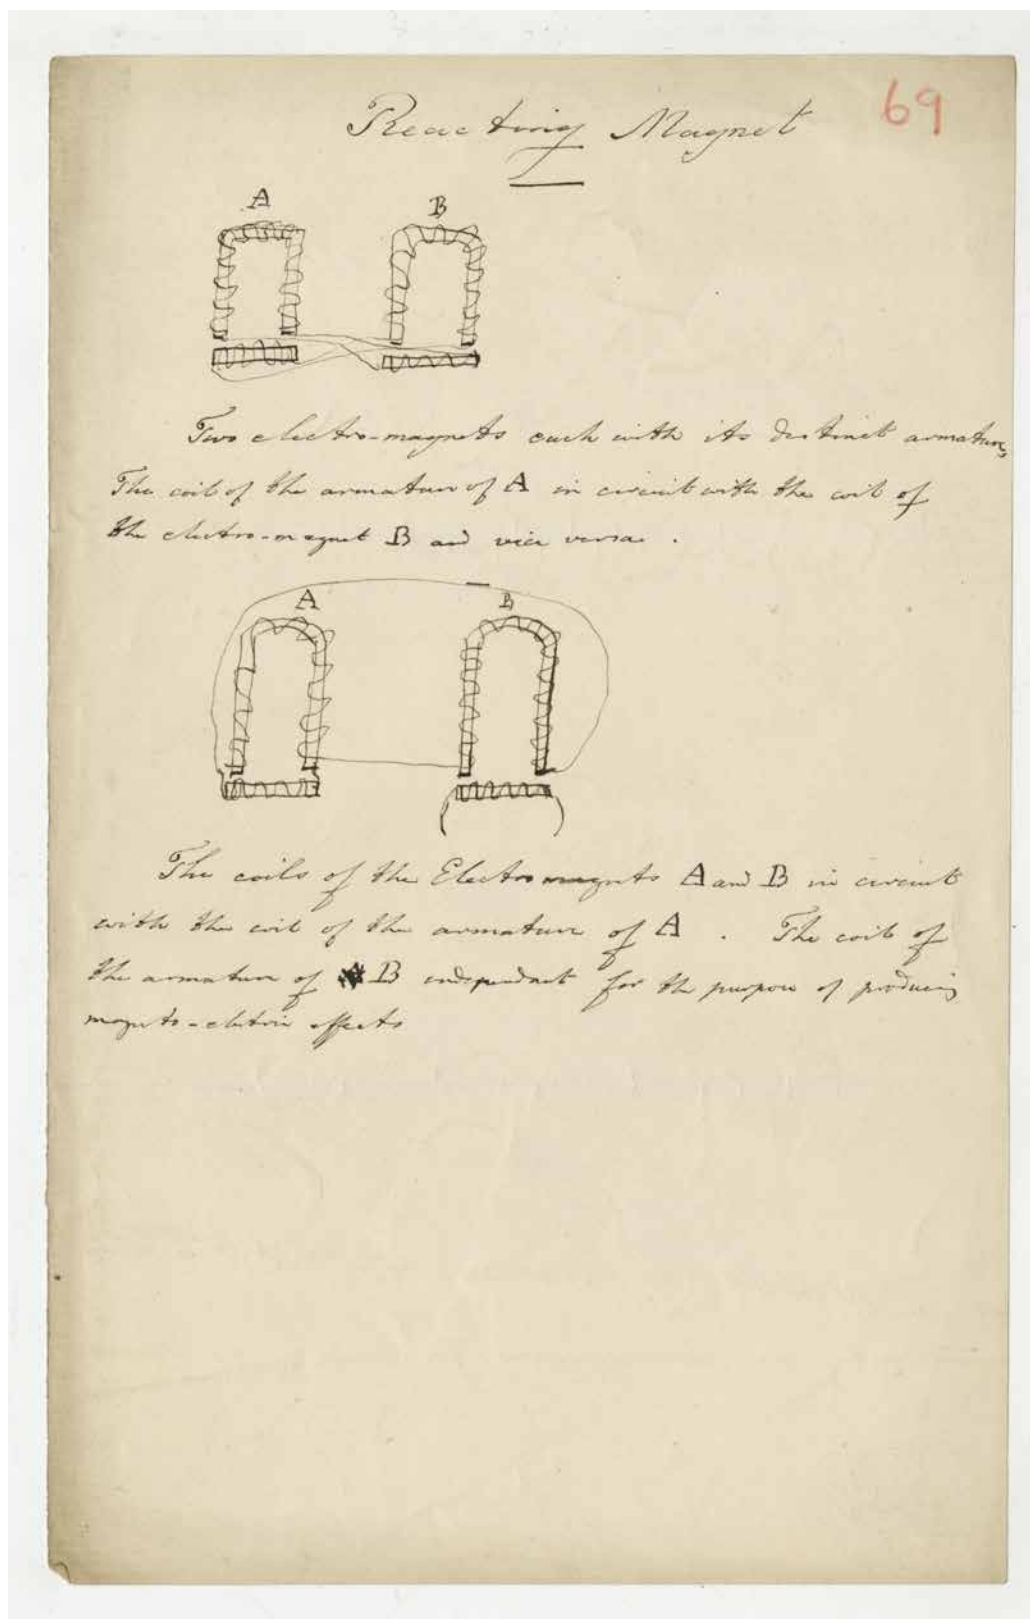 69
Reacting Magnet
A B
Two electro-magnets each with its distinct armature,
The coil of the armature of A in circuit with the coil of
the electro-magnet B and vice versa .
A B
The coils of the Electromagnets A and B in circuit
with the coil of the armature of A . The coil of
the armature of B independant for the purpose of producing
magneto-electric effects